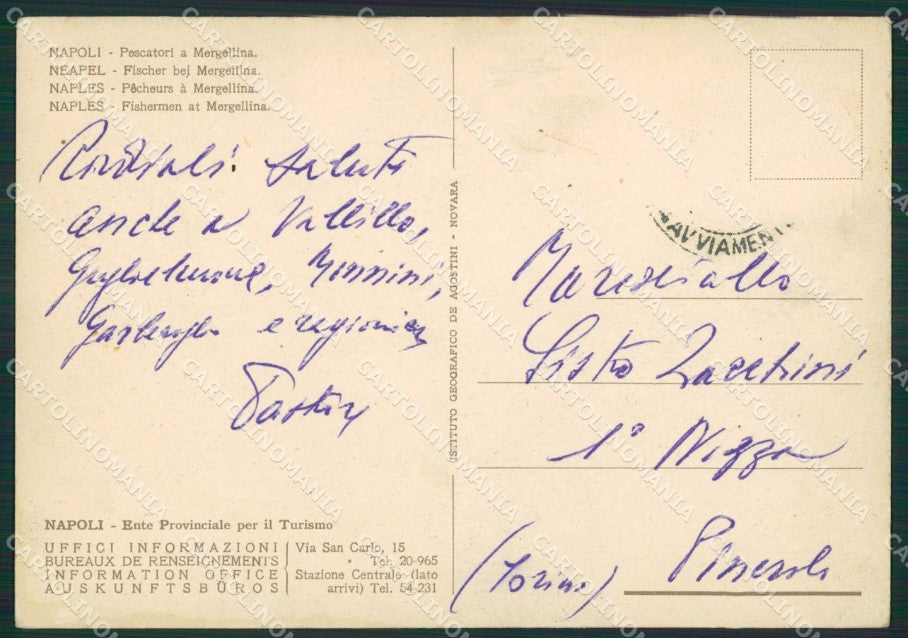 NAPOLI - Pescatori a Mergellina.
NEAPEL - Fischer bei Mergellina.
NAPLES - Pêcheurs à Mergellina.
NAPLES - Fishermen at Mergellina.
Cordiali saluti
anche a
Guglielmone, Monnini,
e
ISTITUTO GEOGRAFICO DE AGOSTINI - NOVARA
AVVIAMENT
Maresciallo
Sisto Zacchini
1° Nizza
Pinerolo
(Torino)
NAPOLI - Ente Provinciale per il Turismo
UFFICI INFORMAZIONI
BUREAUX DE RENSEIGNEMENTS
INFORMATION OFFICE
AUSKUNFTSBÜROS
Via San Carlo, 15
Tel. 20-965
Stazione Centrale (lato
arrivi) Tel. 54-231
CARTOLINOMANIA